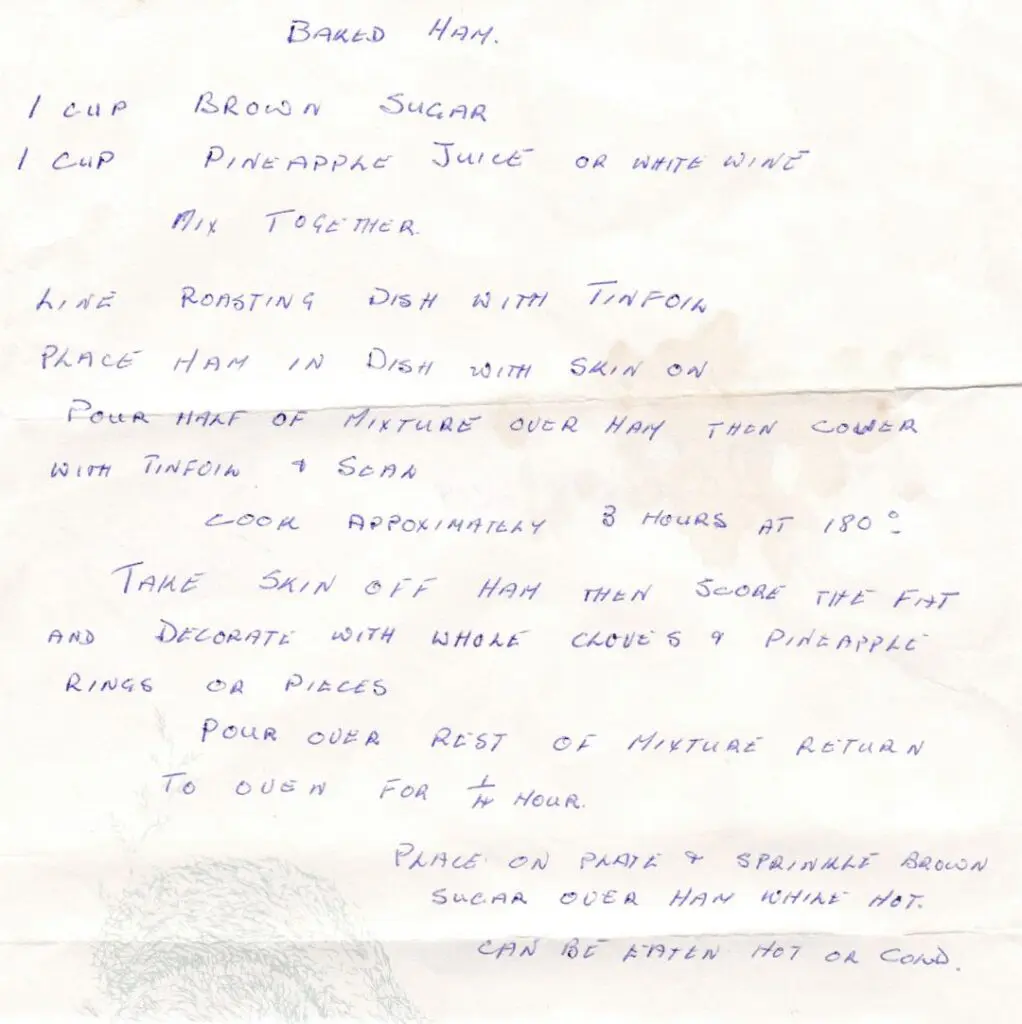 BAKED HAM.
1 CUP BROWN SUGAR
1 CUP PINEAPPLE JUICE OR WHITE WINE
MIX TOGETHER.
LINE ROASTING DISH WITH TINFOIL
PLACE HAM IN DISH WITH SKIN ON
POUR HALF OF MIXTURE OVER HAM THEN COVER
WITH TINFOIL & SEAL
COOK APPOXIMATELY 3 HOURS AT 180°
TAKE SKIN OFF HAM THEN SCORE THE FAT
AND DECORATE WITH WHOLE CLOVES & PINEAPPLE
RINGS OR PIECES
POUR OVER REST OF MIXTURE RETURN
TO OVEN FOR 1/4 HOUR.
PLACE ON PLATE & SPRINKLE BROWN
SUGAR OVER HAM WHILE HOT.
CAN BE EATEN HOT OR COLD.